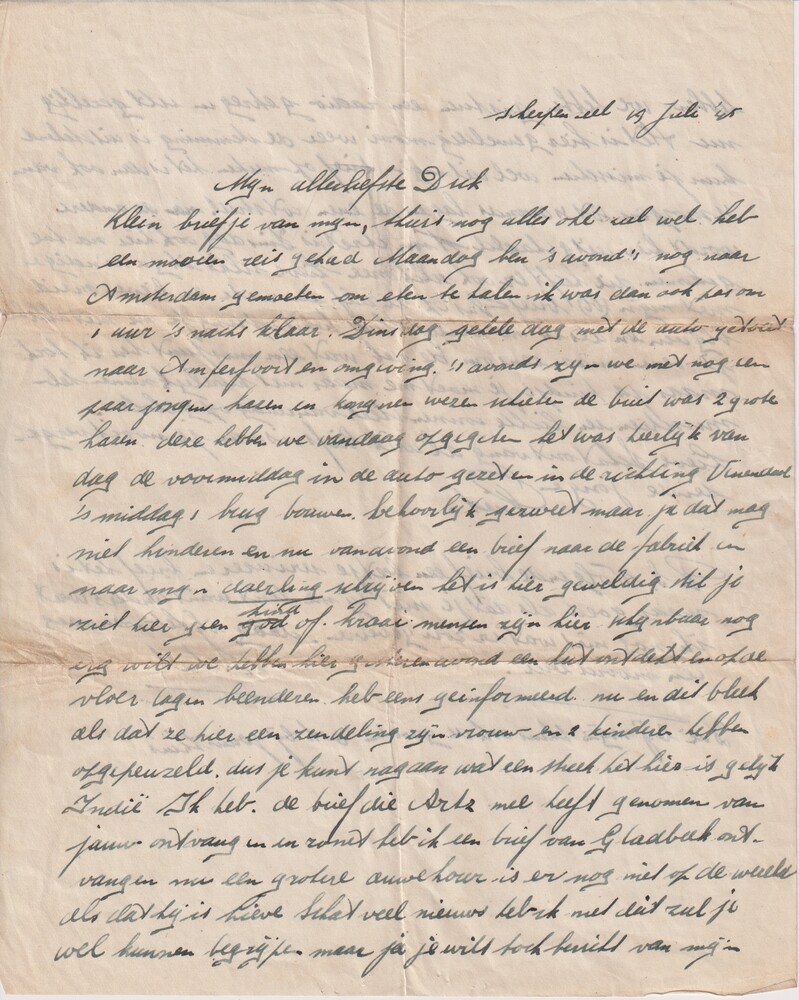 Scherpenzeel 19 Juli '45
Mijn allerliefste Dick
Klein briefje van mijn, thuis nog alles oké zal wel heb
een mooien reis gehad Maandag ben 's avond's nog naar
Amsterdam gemoeten om eten te halen ik was dan ook pas om
1 uur 's nachts klaar. Dinsdag gehele dag met de auto getoerd
naar Amersfoort en omgeving. 's avonds zijn we met nog een
paar jongens hazen en konijnen wezen schieten de buit was 2 grote
hazen deze hebben we vandaag opgegeten het was heerlijk van
dag de voormiddag in de auto gezeten in de richting Veenendaal
's middags brug bouwen. behoorlijk gezweet maar ja dat mag
niet hinderen en nu vanavond een brief naar de fabriek en
naar mijn daerling schrijven het is hier geweldig stil je
ziet hier geen hond of kraai mensen zijn hier schijnbaar nog
erg wilt we hebben hier gisterenavond een hut ontdekt en op de
vloer lagen beenderen heb eens geinformeerd nu en dit bleek
als dat ze hier een zendeling zijn vrouw en 2 kinderen hebben
opgepeuzeld. dus je kunt nagaan wat een streek het hier is gelijk
Indië Ik heb. de brief die Artz mee heeft genomen van
jouw ontvangen en zonet heb ik een brief van Gladbeek ont-
vangen nu een grotere ouwehoer is er nog niet op de wereld
als dat hij is lieve Schat veel nieuws heb ik niet dat zul je
wel kunnen begrijpen maar ja je wilt toch bericht van mijn